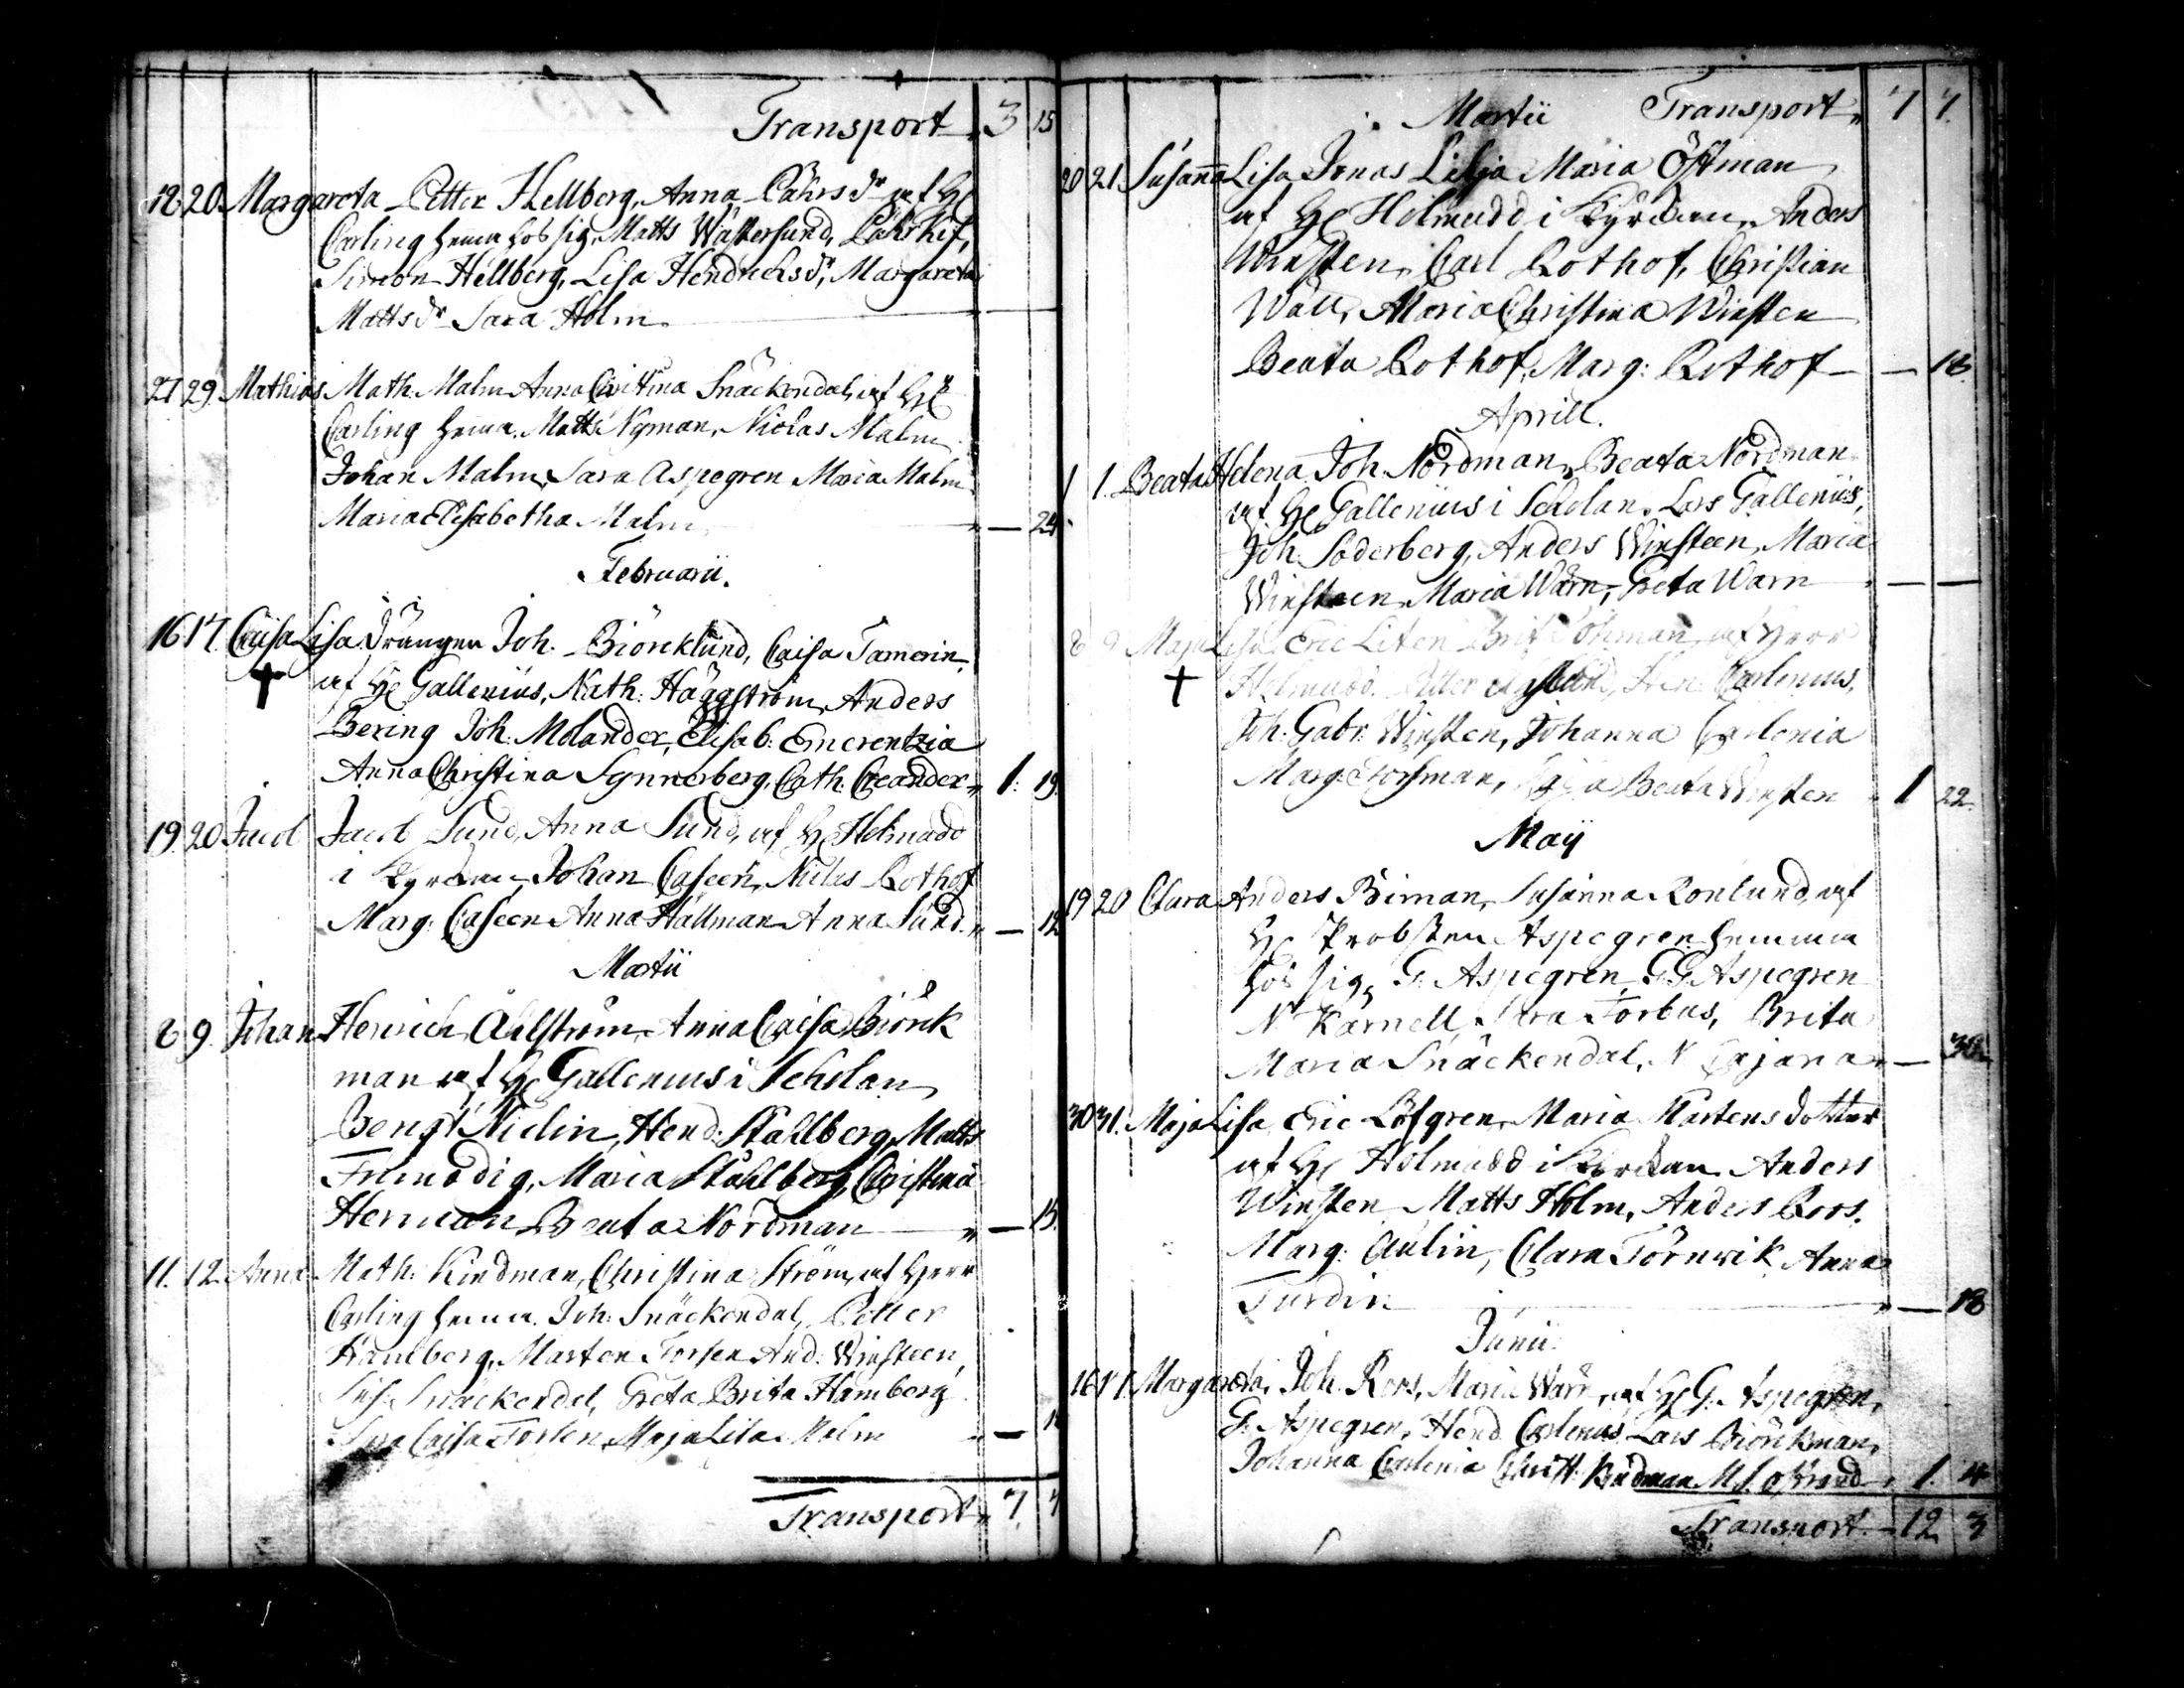 Transport 3 15
18 20 Margareta Petter Hellberg, Anna Påhrs dr af H
Carling hema hos sig, Matts Wästersund,
Simon Hellberg, Lisa Hendricks dr, Margareta
Matts dr Sara Holm
27 29. Mathias Math. Malm Anna Christina Snäckendal, af H
Carling hema. Matts Nyman, Niclas Malm
Johan Malm, Sara Aspegren Maria Malm
Maria Elisabetha Malm — 24.
Februarii.
16 17. Caisa Lisa Drängen Joh. Biörcklund, Caisa Tamerin
† af H Gallenius, Nath: Häggström, Anders
Bering Joh: Molander, Elisab: Emerentzia
Anna Christina Synnerberg, Cath: Creander 1. 19.
19. 20 Jacob Jacob Sund, Anna Sund, af H Holmudd
i Kyrckan Johan Caseen, Niclas Rothof
Marg: Caseen Anna Hällman Anna Sund. — 12
Martii
8 9. Johan Henrich Åhlström, Anna Caisa Biörk
man af H Gallenius i Scholan
Bengt Nielin, Hend: Ståhlberg, Matts
Frimodig, Maria Ståhlberg, Christina
Herman Beata Nordman — 15.
11. 12. Anna Math: Kindman, Christina Ström, af Herr
Carling hema. Joh: Snäckendal, Petter
Hamberg, Marten Forsen And: Winsteen,
Snäckendal, Greta Brita Hamberg
Caisa Forsen, Maja Lisa Malm —
Transport 7. 7
Martii Transport 7 7.
20 21. Susanna Lisa Jonas Lilja Maria Östman
af H Holmudd i Kyrckan, Anders
Winsten, Carl Rothof, Christian
Wäll, Maria Christina Winsten
Beata Rothof, Marg: Rothof — 18.
Aprill.
1 1. Beata Helena Joh. Nordman, Beata Nordman
af H Gallenius i Scholan. Lars Gallenius,
Joh. Söderberg, Anders Winsteen, Maria
Winsteen, Maria Wärn, Greta Wärn — —
8 9 Maja Lisa Eric Liten Brit Öhman, af Herr
† Holmudd. Petter Carlenius,
Joh: Gabr: Winsten, Johanna Carlenia
Marg: Beata Winsten 1 22.
Maij
19 20 Clara Anders Biman, Susanna Ronlund, af
H Probsten Aspegren hemma
hos sig, G: Aspegren, G:G: Aspegren
N Karnell, Sara Forbus, Brita
Maria Snäckendal, N Cajana — 30
30 31. Maja Lisa Eric Löfgren, Maria Mårtens dotter
af H Holmudd i Kyrckan. Anders
Winsten Matts Holm, Anders Roos.
Marg: Aulin, Clara Törnvik Anna
Turdin — 18
Junii.
16 17 Margareta, Joh. Roos, Maria Wärn, af H G: Aspegren,
G: Aspegren, Hend Carlenius Lars Biörckman,
Johanna Carlenia Christ: Kindman 1. 4
Transport. — 12 3